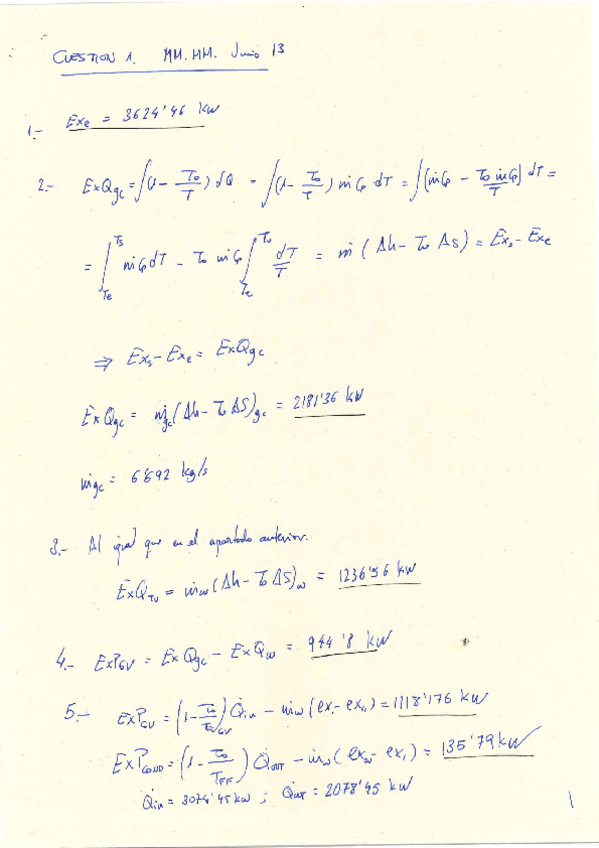 CUESTION 1. MM.MM. Junio 13
1.- Exe = 3624'46 kW
2.- ĖxQgc = ∫(1 - To/T) dQ = ∫(1 - To/T) ṁCp dT = ∫[ṁCp - To ṁCp/T] dT =
= ∫Te Ts ṁCp dT - To ṁCp ∫Te To dT/T = ṁ (Δh - To Δs) = Ėxs - Ėxe
⇒ Ėxs - Ėxe = ĖxQgc
ĖxQgc = ṁgc (Δh - To ΔS)gc = 2181'36 kW
ṁgc = 6'692 kg/s
3.- Al igual que en el apartado anterior.
ĖxQTU = ṁw (Δh - To ΔS)w = 1236'56 kW
4.- ExPGV = ExQgc - ExQw = 944'8 kW
5.- ExPGV = (1 - To/ GV) Q̇in - ṁw (ex - ex ) = 1118'176 kW
ExPCOND = (1 - To/TFF) Q̇OUT - ṁw ( - ex1) = 135'79 kW
Q̇in = 3074'45 kW ; Q̇OUT = 2078'45 kW
1